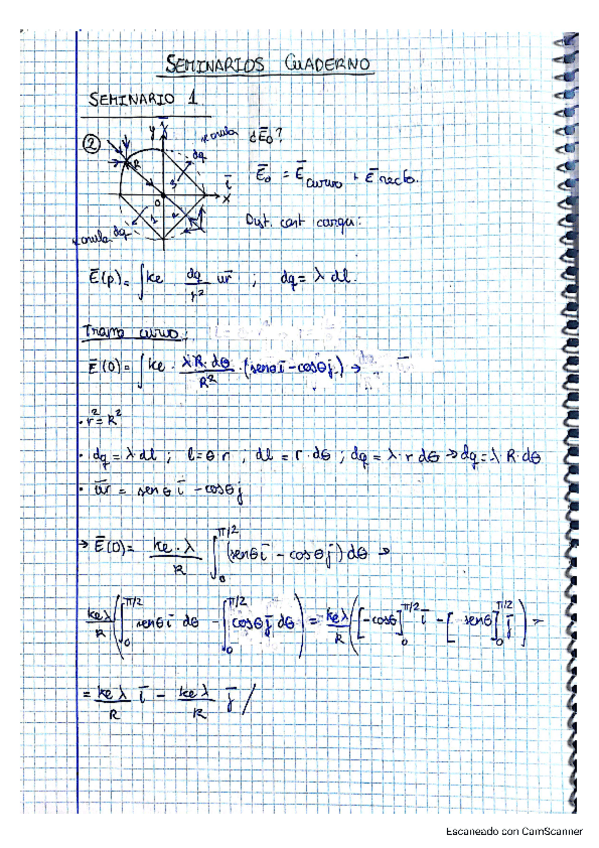 SEMINARIOS CUADERNO
SEMINARIO 1
② y se anula ¿E̅₀?
dq
R 3 i̅ E̅₀ = E̅curvo + E̅recto.
O x
1 2 Dist. cont carga:
se anula dq
E̅(p) = ∫ke dq/r² u̅r ; dq = λ dl.
Tramo curvo:
E̅(0) = ∫ke · λR·dθ/R² · (senθi̅ - cosθj̅) →
· r² = R²
· dq = λ dl ; l = θ r ; dl = r·dθ ; dq = λ·r dθ → dq = λ R·dθ
· u̅r = senθ i̅ - cosθj
→ E̅(0) = ke·λ/R ∫₀^π/2 (senθi̅ - cosθj̅) dθ →
keλ/R (∫₀^π/2 senθi̅ dθ - ∫₀^π/2 cosθj̅ dθ) = keλ/R ([-cosθ]₀^π/2 i̅ - [senθ]₀^π/2 j̅) =
= keλ/R i̅ - keλ/R j̅ /
Escaneado con CamScanner